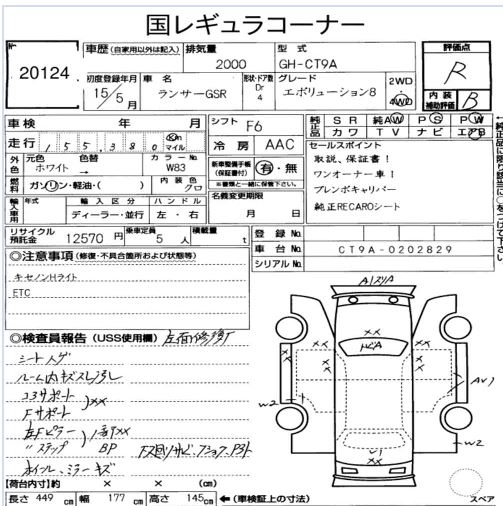 国レギュラコーナー
No. 20124
車歴(自家用以外は記入) 排気量 2000 型式 GH-CT9A
評価点 R
初度登録年月 15年5月 車名 ランサーGSR 形状・ドア数 Dr 4 グレード エボリューション8 2WD 4WD
内装補助評価 B
車検 年 月 シフト F6
走行 155380 km マイル 冷房 AAC
純正品 SR 純AW PS PW
カワ TV ナビ エアB
←純正品に限り該当に○をつけて下さい
外色 元色 ホワイト → 色替 カラーNo. W83
新車整備手帳(保証書付) 有・無
※書類と一緒に保管下さい。
燃料 ガソリン・軽油・( ) 内装色 クロ
セールスポイント
取説、保証書!
ワンオーナー車!
ブレンボキャリパー
純正RECAROシート
輸入車用 年式 輸入区分 ディーラー・並行 ハンドル 左・右
名義変更期限 月 日
リサイクル預託金 12570円 乗車定員 5人 積載量 t
登録No.
車台No. CT9A-0202829
シリアルNo.
◎注意事項(修復・不具合箇所および状態等)
キセノンHライト
ETC
◎検査員報告(USS使用欄)
シート
ルーム内キズ
コアサポート
Fサポート
××
左Fピラー
〃ステップ
BP
ホイル、ミラーキズ
××
××
××
××
W2
W2
V1
【荷台内寸】約 × × (cm)
長さ 449cm 幅 177cm 高さ 145cm ←(車検証上の寸法)
スペア